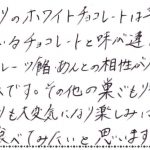 りのホワイトチョコレートは
いるチョコレートと味が違
レーツ餡あんとの相性が
です。その他の巣ごもり
りも大変気になり楽しみに
食べてみたいと思います